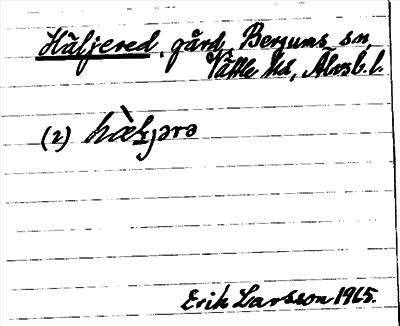 Häljered, gård, Bergums sn,
Vättle hd, Älvsb. l.
(2) hæ̀ljərə
Erik Larsson 1965.